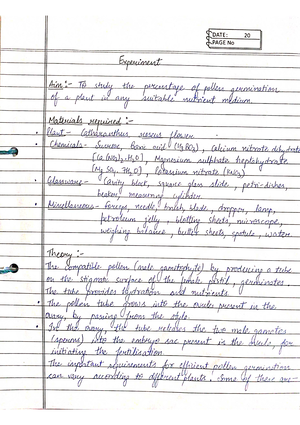 DATE: 20
PAGE No
Experiment
Aim :- To study the percentage of pollen germination
of a plant in any suitable nutrient medium.
Materials required :-
• Plant - Catharanthus roseus flower
• Chemicals - Sucrose, Boric acid (H3BO3), Calcium nitrate dehydrate
[Ca(NO3)2.H2O], Magnesium sulphate heptahydrate
[MgSO4.7H2O], Potassium nitrate [KNO3]
• Glassware - Cavity block, square glass slide, petri-dishes,
beaker, measuring cylinder.
• Miscellaneous - Forceps, needle, brush, blade, dropper, lamp,
petroleum jelly, blotting sheets, microscope,
weighing balance, butter sheets, spatula, water
Theory :-
The compatible pollen (male gametophyte) by producing a tube
on the stigmatic surface of the female pistil, germinates.
The tube provides hydration and nutrients.
• The pollen tube grows into the ovule present in the
ovary, by passing from the style.
• In the ovary, the tube releases the two male gametes
(sperms) into the embryo sac present in the ovule, for
initiating the fertilisation.
The important requirements for efficient pollen germination
can vary according to different plants. Some of them are-